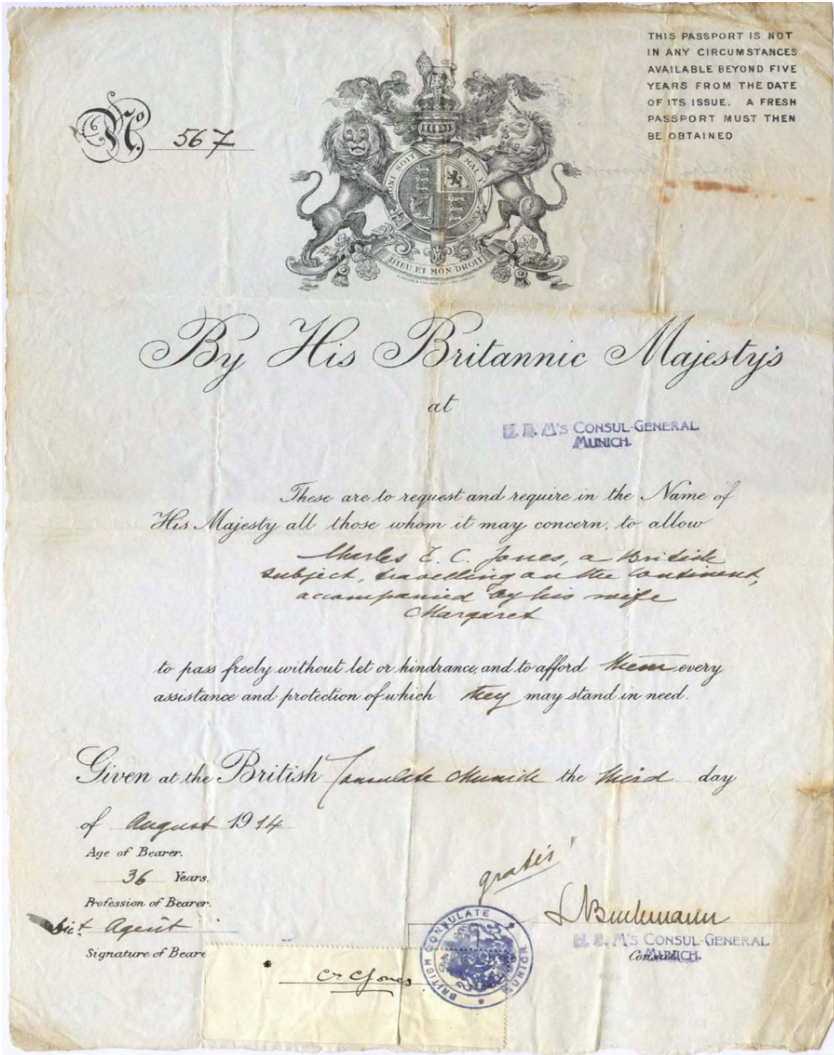 THIS PASSPORT IS NOT
IN ANY CIRCUMSTANCES
AVAILABLE BEYOND FIVE
YEARS FROM THE DATE
OF ITS ISSUE. A FRESH
PASSPORT MUST THEN
BE OBTAINED
No 567
SOIT MAL
DIEU ET MON DROIT
By His Britannic Majesty's
at
H. B. M'S CONSUL-GENERAL
MUNICH.
These are to request and require in the Name of
His Majesty all those whom it may concern, to allow
Charles E. C. Jones, a British
subject, travelling on the Continent,
accompanied by his wife
Margaret
to pass freely without let or hindrance, and to afford them every
assistance and protection of which they may stand in need.
Given at the British Consulate Munich the third day
of August 1914
Age of Bearer.
36 Years.
gratis
Profession of Bearer.
Agent
H. B. M'S CONSUL-GENERAL
MUNICH.
Signature of Beare
C Jones
BRITISH CONSULATE MUNICH